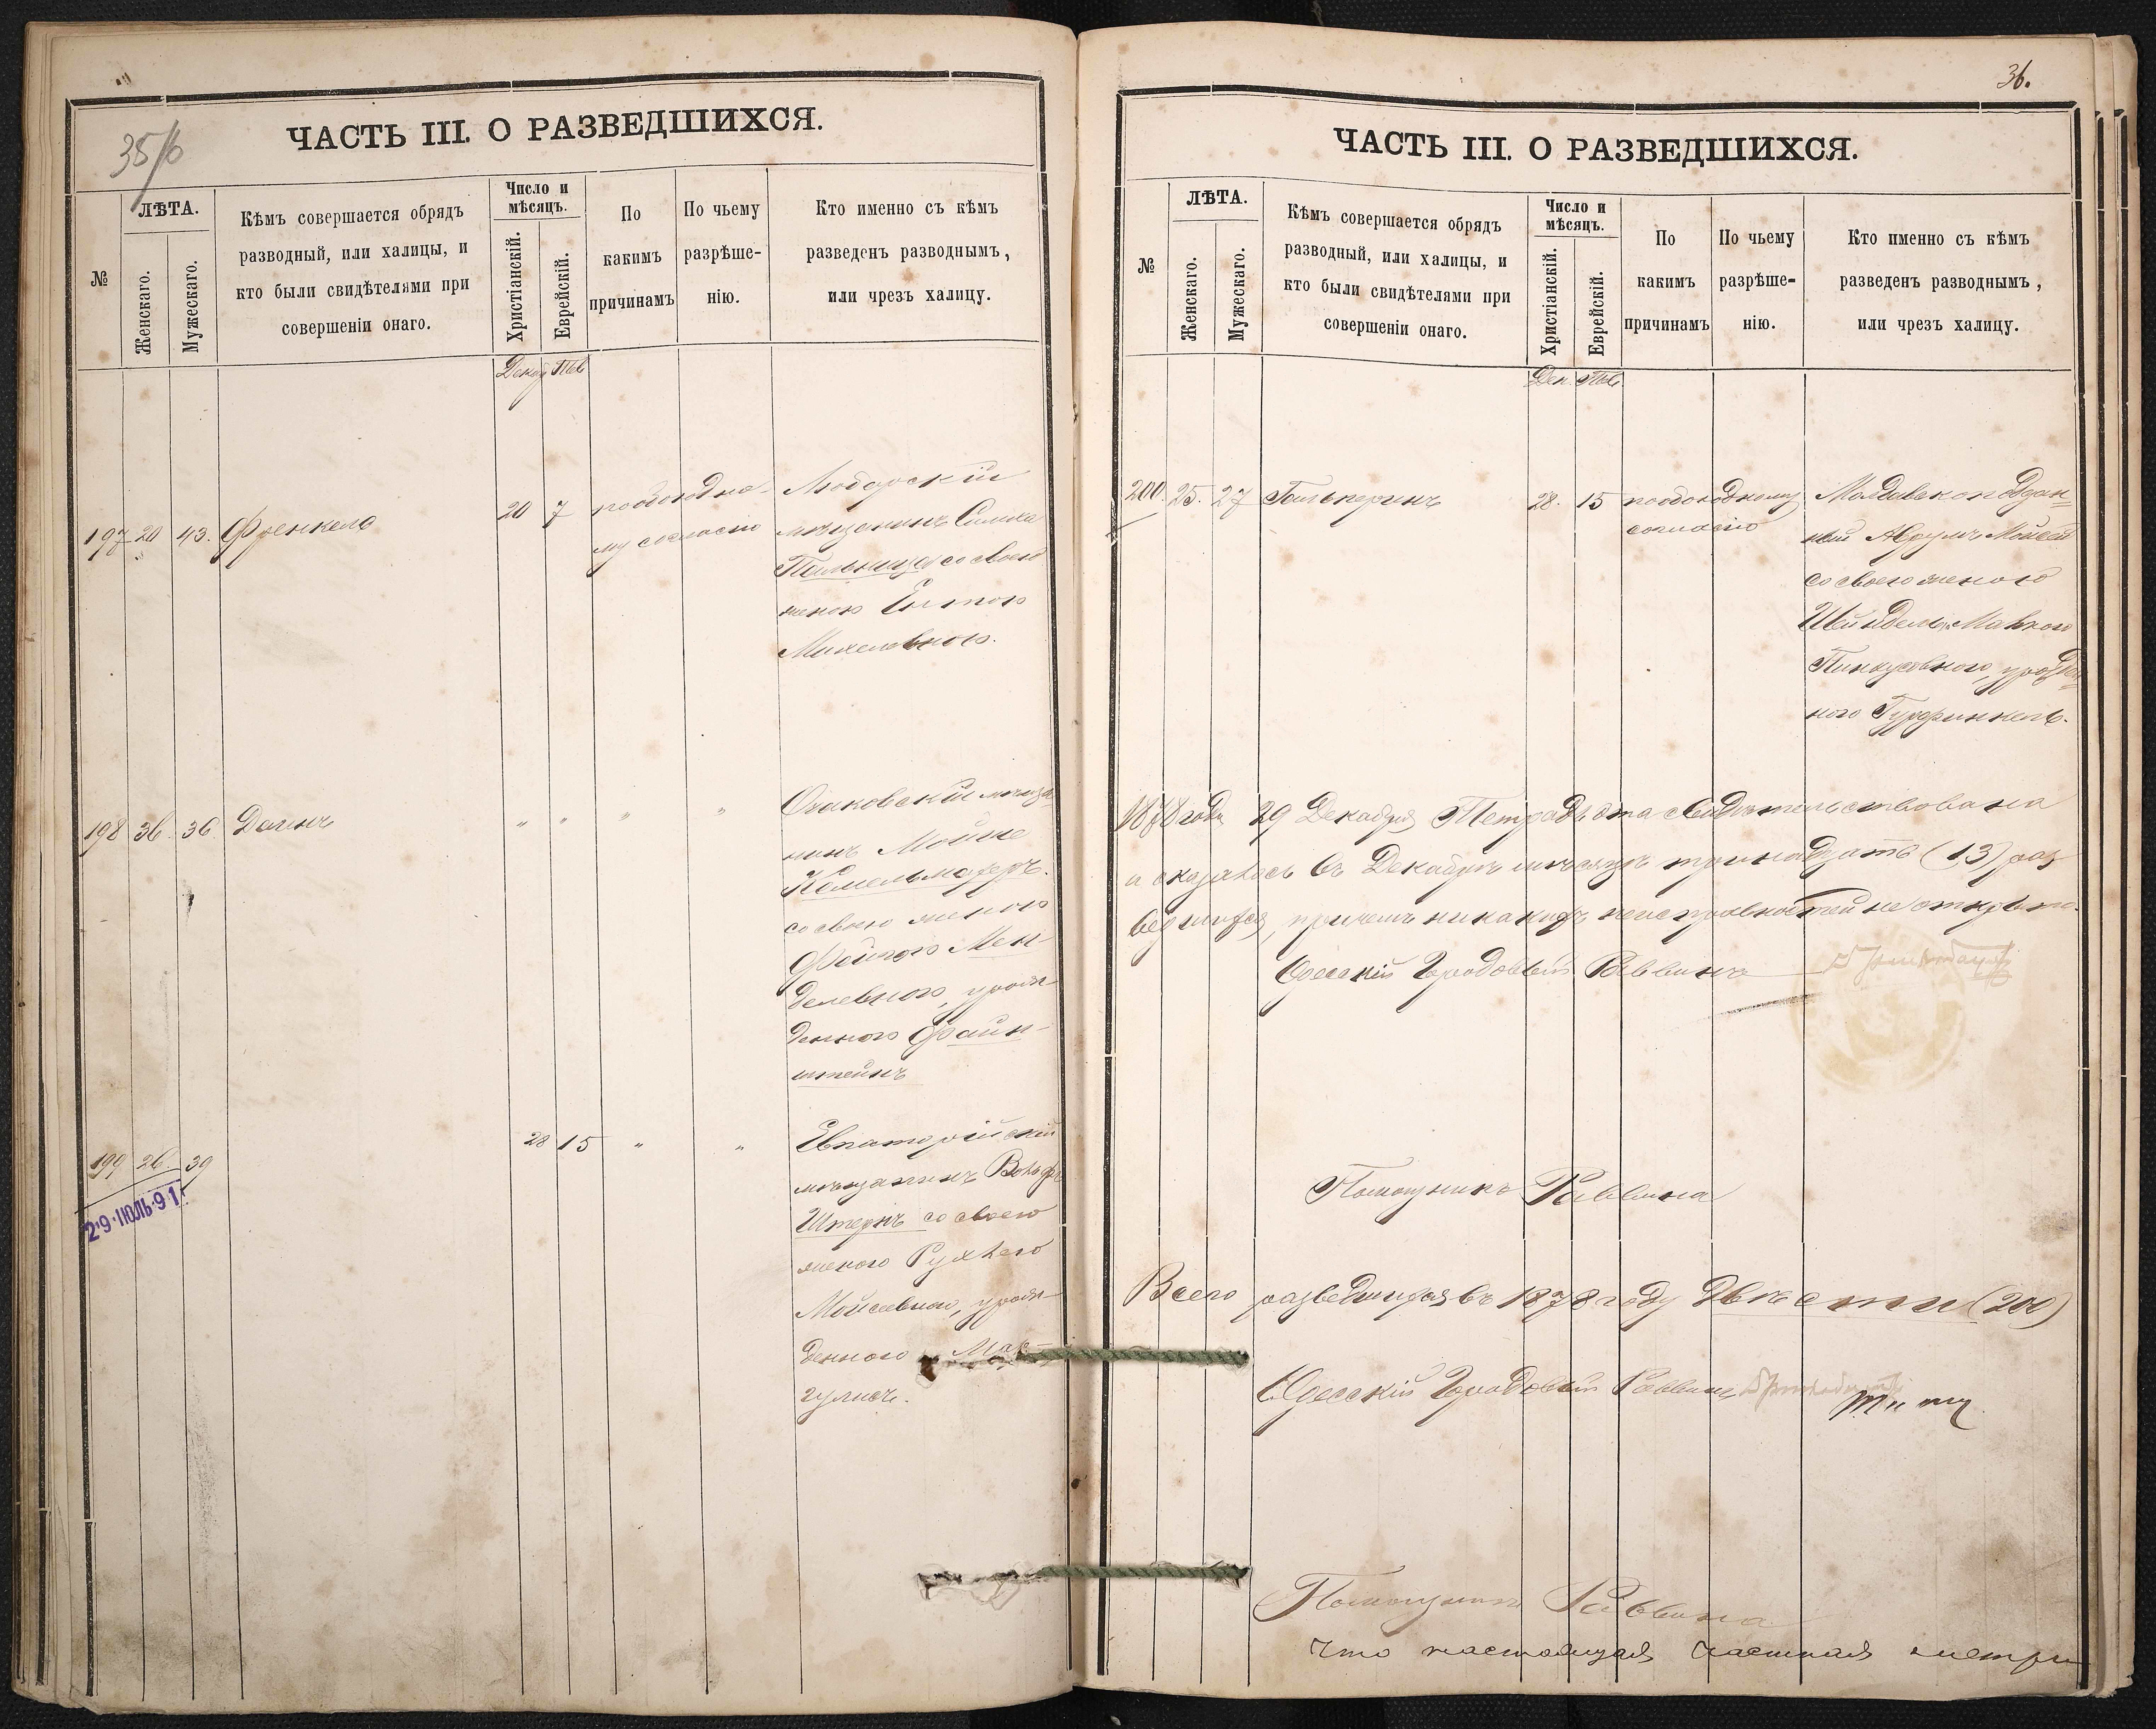 35/6
ЧАСТЬ III. О РАЗВЕДШИХСЯ.
№
ЛѢТА.
Женскаго.
Мужескаго.
Кѣмъ совершается обрядъ
разводный, или халицы, и
кто были свидѣтелями при
совершеніи онаго.
Число и
мѣсяцъ.
Христіанскій.
Еврейскій.
По
какимъ
причинамъ
По чьему
разрѣше-
нію.
Кто именно съ кѣмъ
разведенъ разводнымъ,
или чрезъ халицу.
Декаб Тев
197 20 43. Френкель 20 7 пообоюдно-
му согласію
Любарскій
мѣщанинъ Симха
Пильница со своею
женою Ентою
Михелевною.
198 36 36 Даенъ " " " "
Очаковскій мѣща
нинъ Мойше
Кемельмахеръ.
со своею женою
Фейгою Мен-
делевною, урож-
денною Файн-
штейнъ
199 26. 39 28 15 " "
29 ІЮЛЬ 91
Евпаторійскій
мѣщанинъ Вольфъ
Штернъ со своею
женою Рухлею
Мойсеевною, урож-
денною Мар-
гулисъ.
36.
ЧАСТЬ III. О РАЗВЕДШИХСЯ.
№
ЛѢТА.
Женскаго.
Мужескаго.
Кѣмъ совершается обрядъ
разводный, или халицы, и
кто были свидѣтелями при
совершеніи онаго.
Число и
мѣсяцъ.
Христіанскій.
Еврейскій.
По
какимъ
причинамъ
По чьему
разрѣше-
нію.
Кто именно съ кѣмъ
разведенъ разводнымъ,
или чрезъ халицу.
Дек. Тев
200. 25. 27 Гальперинъ 28. 15 пообоюдному
согласію
Молдавскоподдан-
ный Абрумъ Мойсей
со своею женою
Шейндель Маею
Пинкусовною, урожден-
ною Гурфинкель.
1878 года 29 Декабря Тетрадь эта свидѣтельствована
и оказалось въ Декабрѣ мѣсяцѣ тринадцать (13) раз
ведшихся, причемъ никакихъ неисправностей не открыто.
Одесскій Городовый Раввинъ
Помощникъ Раввина
Всего разведшихся въ 1878 году двѣсти (200)
Одесскій Городовый Раввинъ
Помощникъ Раввина
Что настоящая частная метри